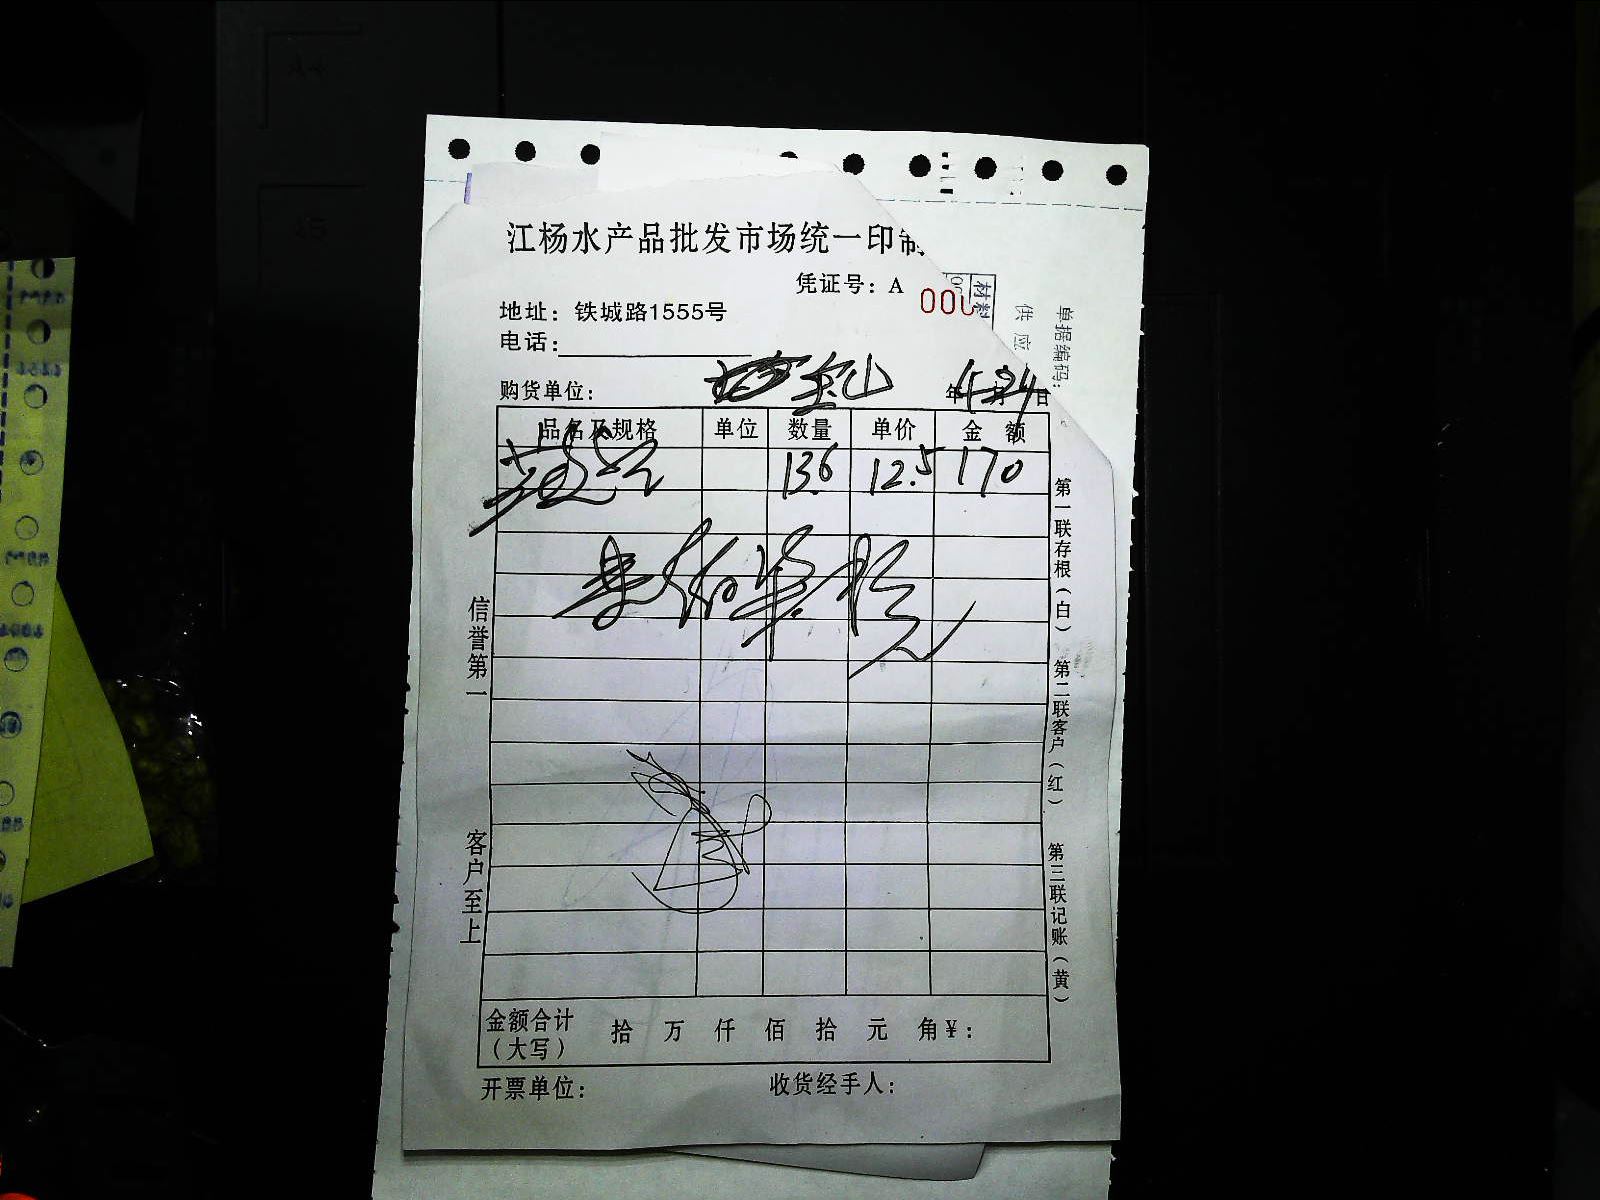 江杨水产品批发市场统一印制
凭证号：A 000
材料
供应
单据编码：
地址：铁城路1555号
电话：
购货单位： 宝山 年 月 日
品名及规格 单位 数量 单价 金额
13.6 12.5 170
信誉第一
客户至上
第一联存根（白）
第二联客户（红）
第三联记账（黄）
金额合计（大写） 拾 万 仟 佰 拾 元 角 ¥：
开票单位： 收货经手人：